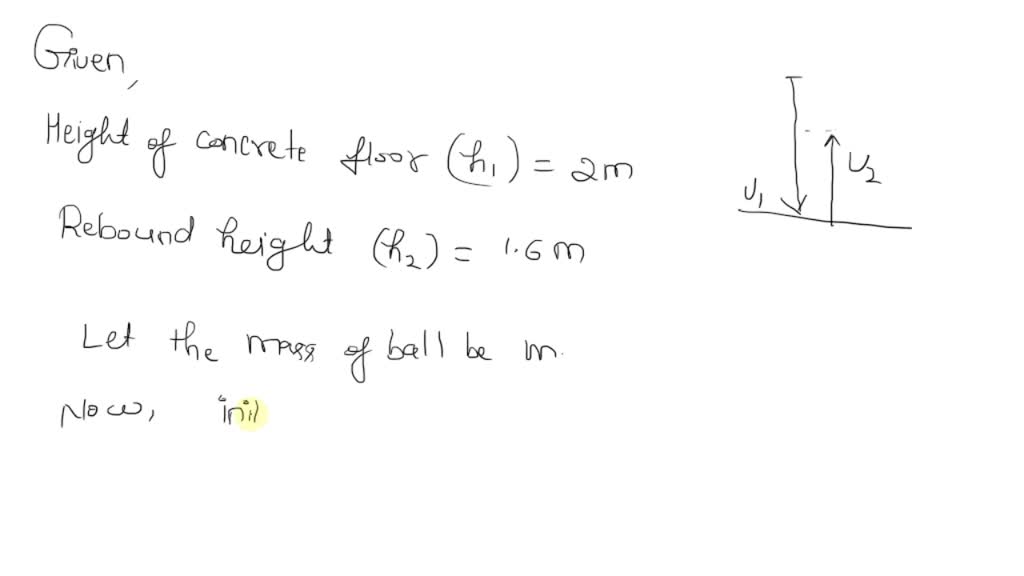 Given,
Height of concrete floor (h₁) = 2m
U₂
U₁
Rebound height (h₂) = 1.6 m
Let the mass of ball be m.
Now, ini